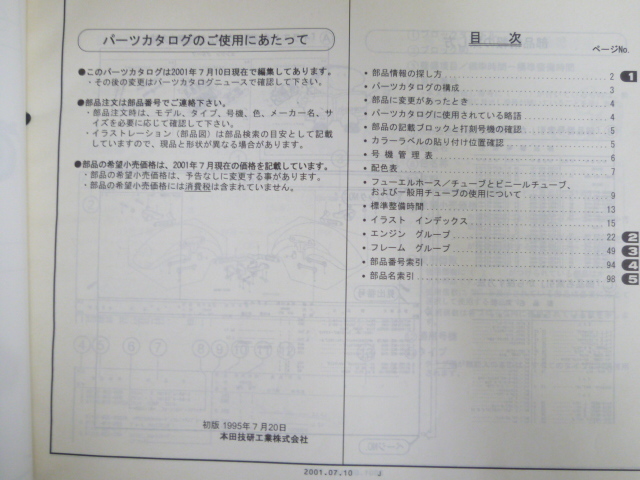 パーツカタログのご使用にあたって
●このパーツカタログは2001年7月10日現在で編集してあります。
・その後の変更はパーツカタログニュースで確認して下さい。
●部品注文は部品番号でご連絡下さい。
・部品注文時は、モデル、タイプ、号機、色、メーカー名、サ
イズを必要に応じて確認して下さい。
・イラストレーション（部品図）は部品検索の目安として記載
していますので、現品と形状が異なる場合があります。
●部品の希望小売価格は、2001年7月現在の価格を記載しています。
・部品の希望小売価格は、予告なしに変更する事があります。
・部品の希望小売価格には消費税は含まれていません。
初版 1995年7月20日
本田技研工業株式会社
目 次
ページNo.
• 部品情報の探し方 2 1
• パーツカタログの構成 3
• 部品に変更があったとき 4
• パーツカタログに使用されている略語 4
• 部品の記載ブロックと打刻号機の確認 5
• カラーラベルの貼り付け位置確認 5
• 号 機 管 理 表 6
• 配色表 7
• フューエルホース／チューブとビニールチューブ、
および一般用チューブの使用について 9
• 標準整備時間 13
• イラスト インデックス 15
• エンジン グループ 22 2
• フレーム グループ 49 3
• 部品番号索引 94 4
• 部品名索引 98 5
2001.07.10